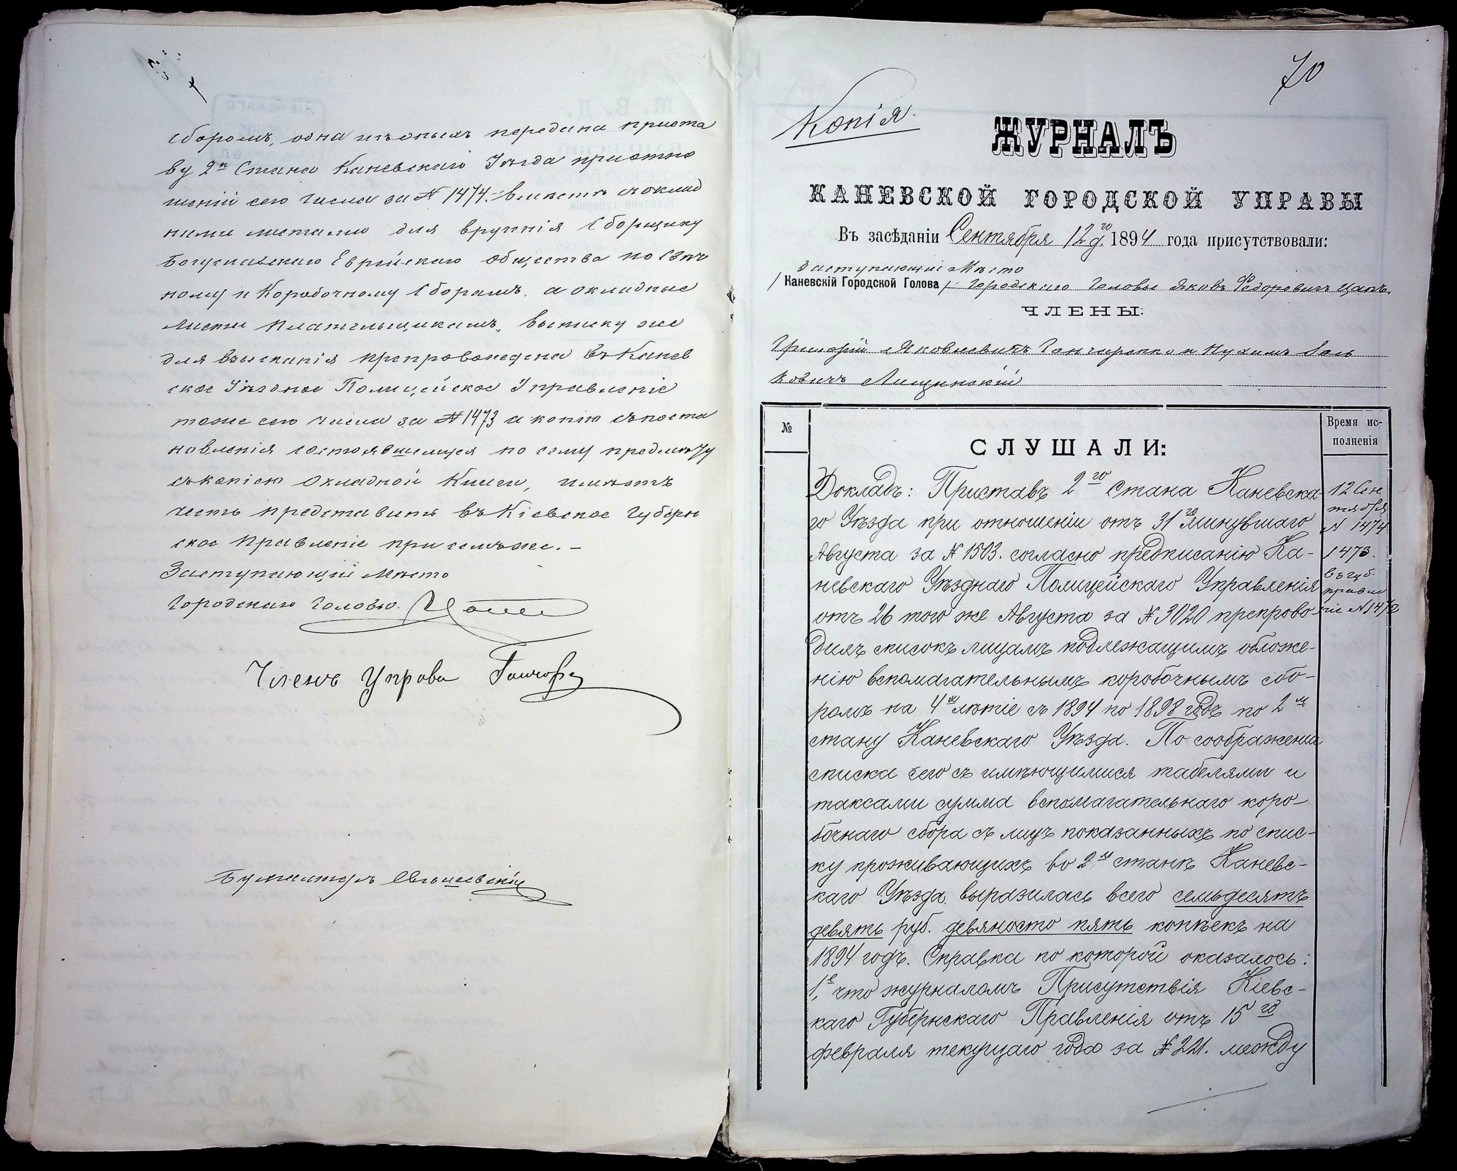 сборомъ, одна изъ оныхъ передана приста
ву 2го Стана Каневскаго Уѣзда при отно
шеніи сего числа за № 1474. вмѣстѣ съ оклад
ными листами для врученія Сборщику
Богуславскаго Еврейскаго общества по Свѣч
ному и Коробочному Сборамъ, а окладные
листы плательщикамъ, выписку же
для взысканія препровождена въ Канев
ское Уѣздное Полицейское Управленіе
тоже сего числа за № 1473 а копію съ поста
новленія состоявшемуся по сему предмѣту
съ копіею Окладной Книги, имѣетъ
честь представить въ Кіевское Губерн
ское Правленіе при семъ же. –
Заступающій Мѣсто
Городскаго Головы.
Членъ Управы Гончар
Бухгалтеръ
70
Копія.
ЖУРНАЛЪ
КАНЕВСКОЙ ГОРОДСКОЙ УПРАВЫ
Въ засѣданіи Сентября 12 дго 1894 года присутствовали:
Заступающій Мѣсто
/Каневскій Городской Голова/ Городскаго Головы Яковъ Ѳедоровичъ Цапъ.
ЧЛЕНЫ:
Григорій Яковлевичъ Гончаренко и Нухимъ Воль
ковичъ Лищинскій
№
СЛУШАЛИ:
Время ис-
полненія
Докладъ: Приставъ 2го Стана Каневска-
го Уѣзда при отношеніи отъ 31го минувшаго
Августа за № 1503. согласно предписанію Ка-
невскаго Уѣзднаго Полицейскаго Управленія
отъ 26 того же Августа за № 3020 препрово-
дилъ списокъ лицамъ подлежащимъ обложе-
нію вспомагательнымъ коробочнымъ сбо-
ромъ на 4хъ лѣтіе съ 1894 по 1898 годъ по 2му
стану Каневскаго Уѣзда. По соображеніи
списка сего съ имѣющимися табелями и
таксами сумма вспомагательнаго коро-
бочнаго сбора съ лицъ показанныхъ по спис-
ку проживающихъ во 2мъ станѣ Каневс-
каго Уѣзда выразилась всего семьдесятъ
девять руб. девяносто пять копѣекъ на
1894 годъ. Справка по которой оказалось:
1е, что журналомъ Присутствія Кіевс-
каго Губернскаго Правленія отъ 15го
февраля текущаго года за № 221. между
12 Сен
тября
№ 1474
1473.
въ губ.
правле
ніе № 1472